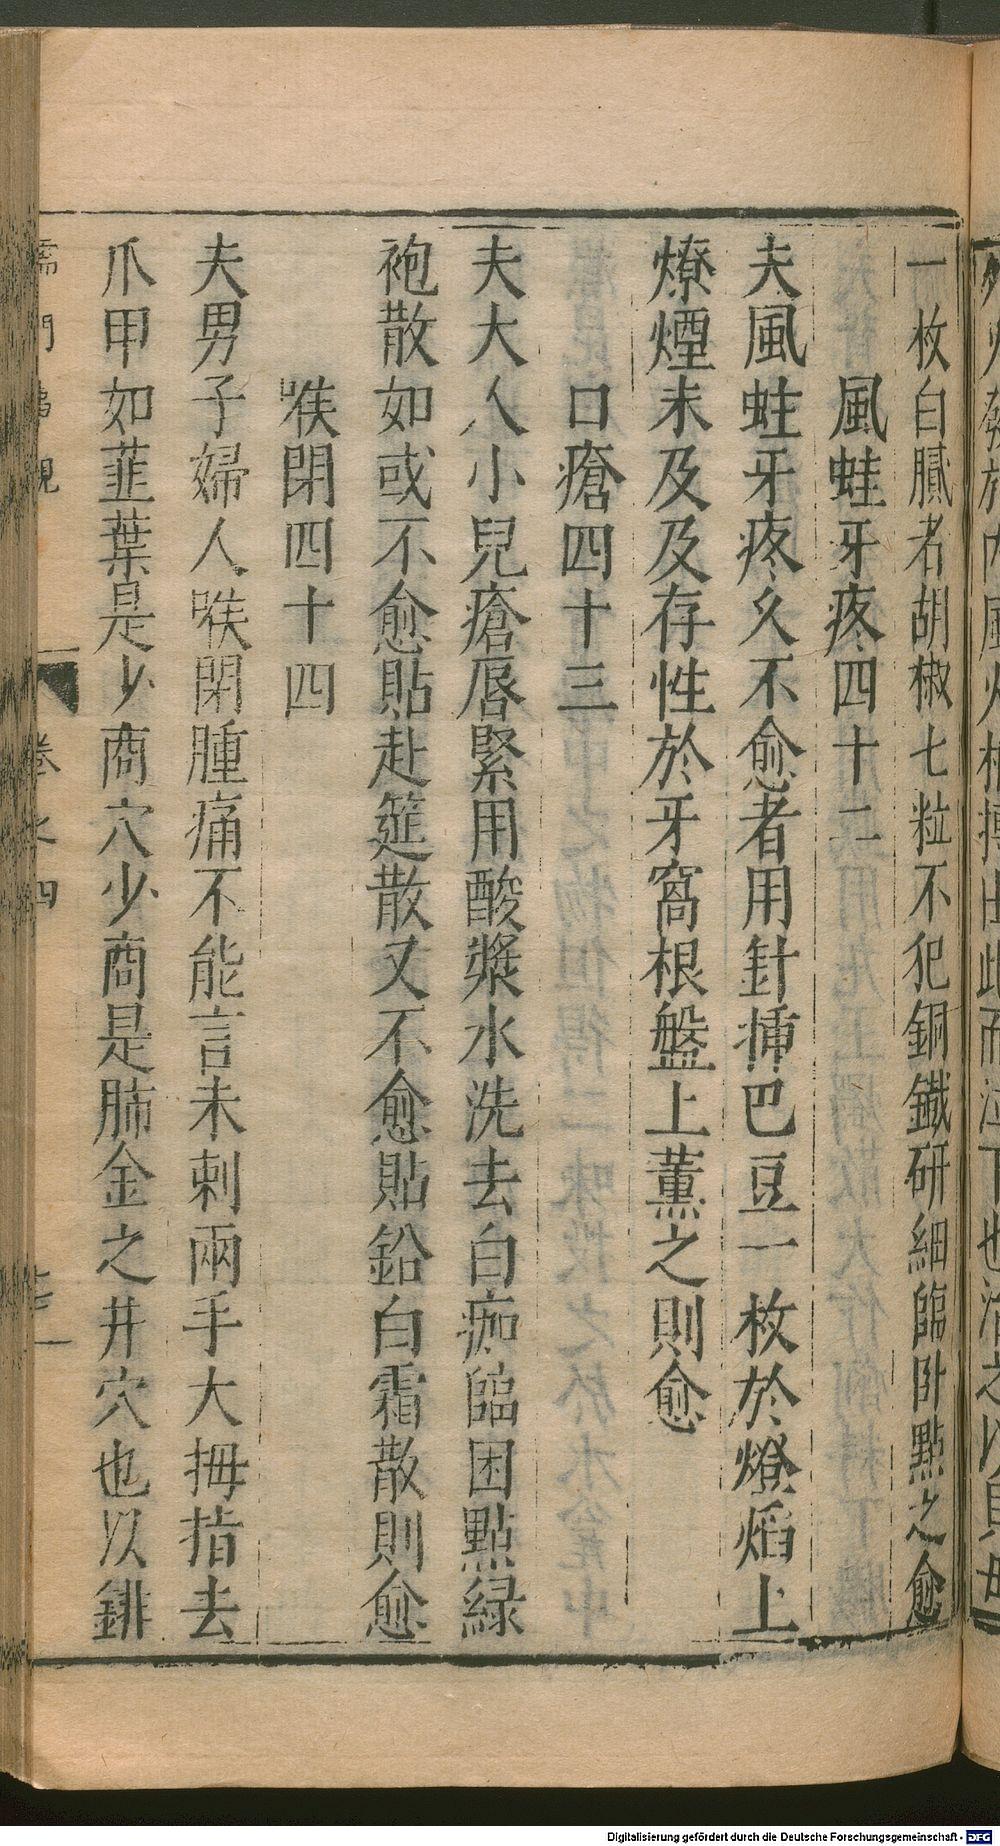 一枚白膩者胡椒七粒不犯銅鐵研細臨卧點之愈
風蛀牙疼四十二
夫風蛀牙疼久不愈者用針揷巴豆一枚於燈焰上
燎煙未及及存性於牙窩根盤上薰之則愈
口瘡四十三
夫大人小兒瘡唇緊用酸漿水洗去白痂臨困點緑
袍散如或不愈貼赴筵散又不愈貼鉛白霜散則愈
喉閉四十四
夫男子婦人喉閉腫痛不能言未刺兩手大拇指去
爪甲如韮葉是少商穴少商是肺金之井穴也以鈹
儒門事親
卷之四
Digitalisierung gefördert durch die Deutsche Forschungsgemeinschaft - DFG